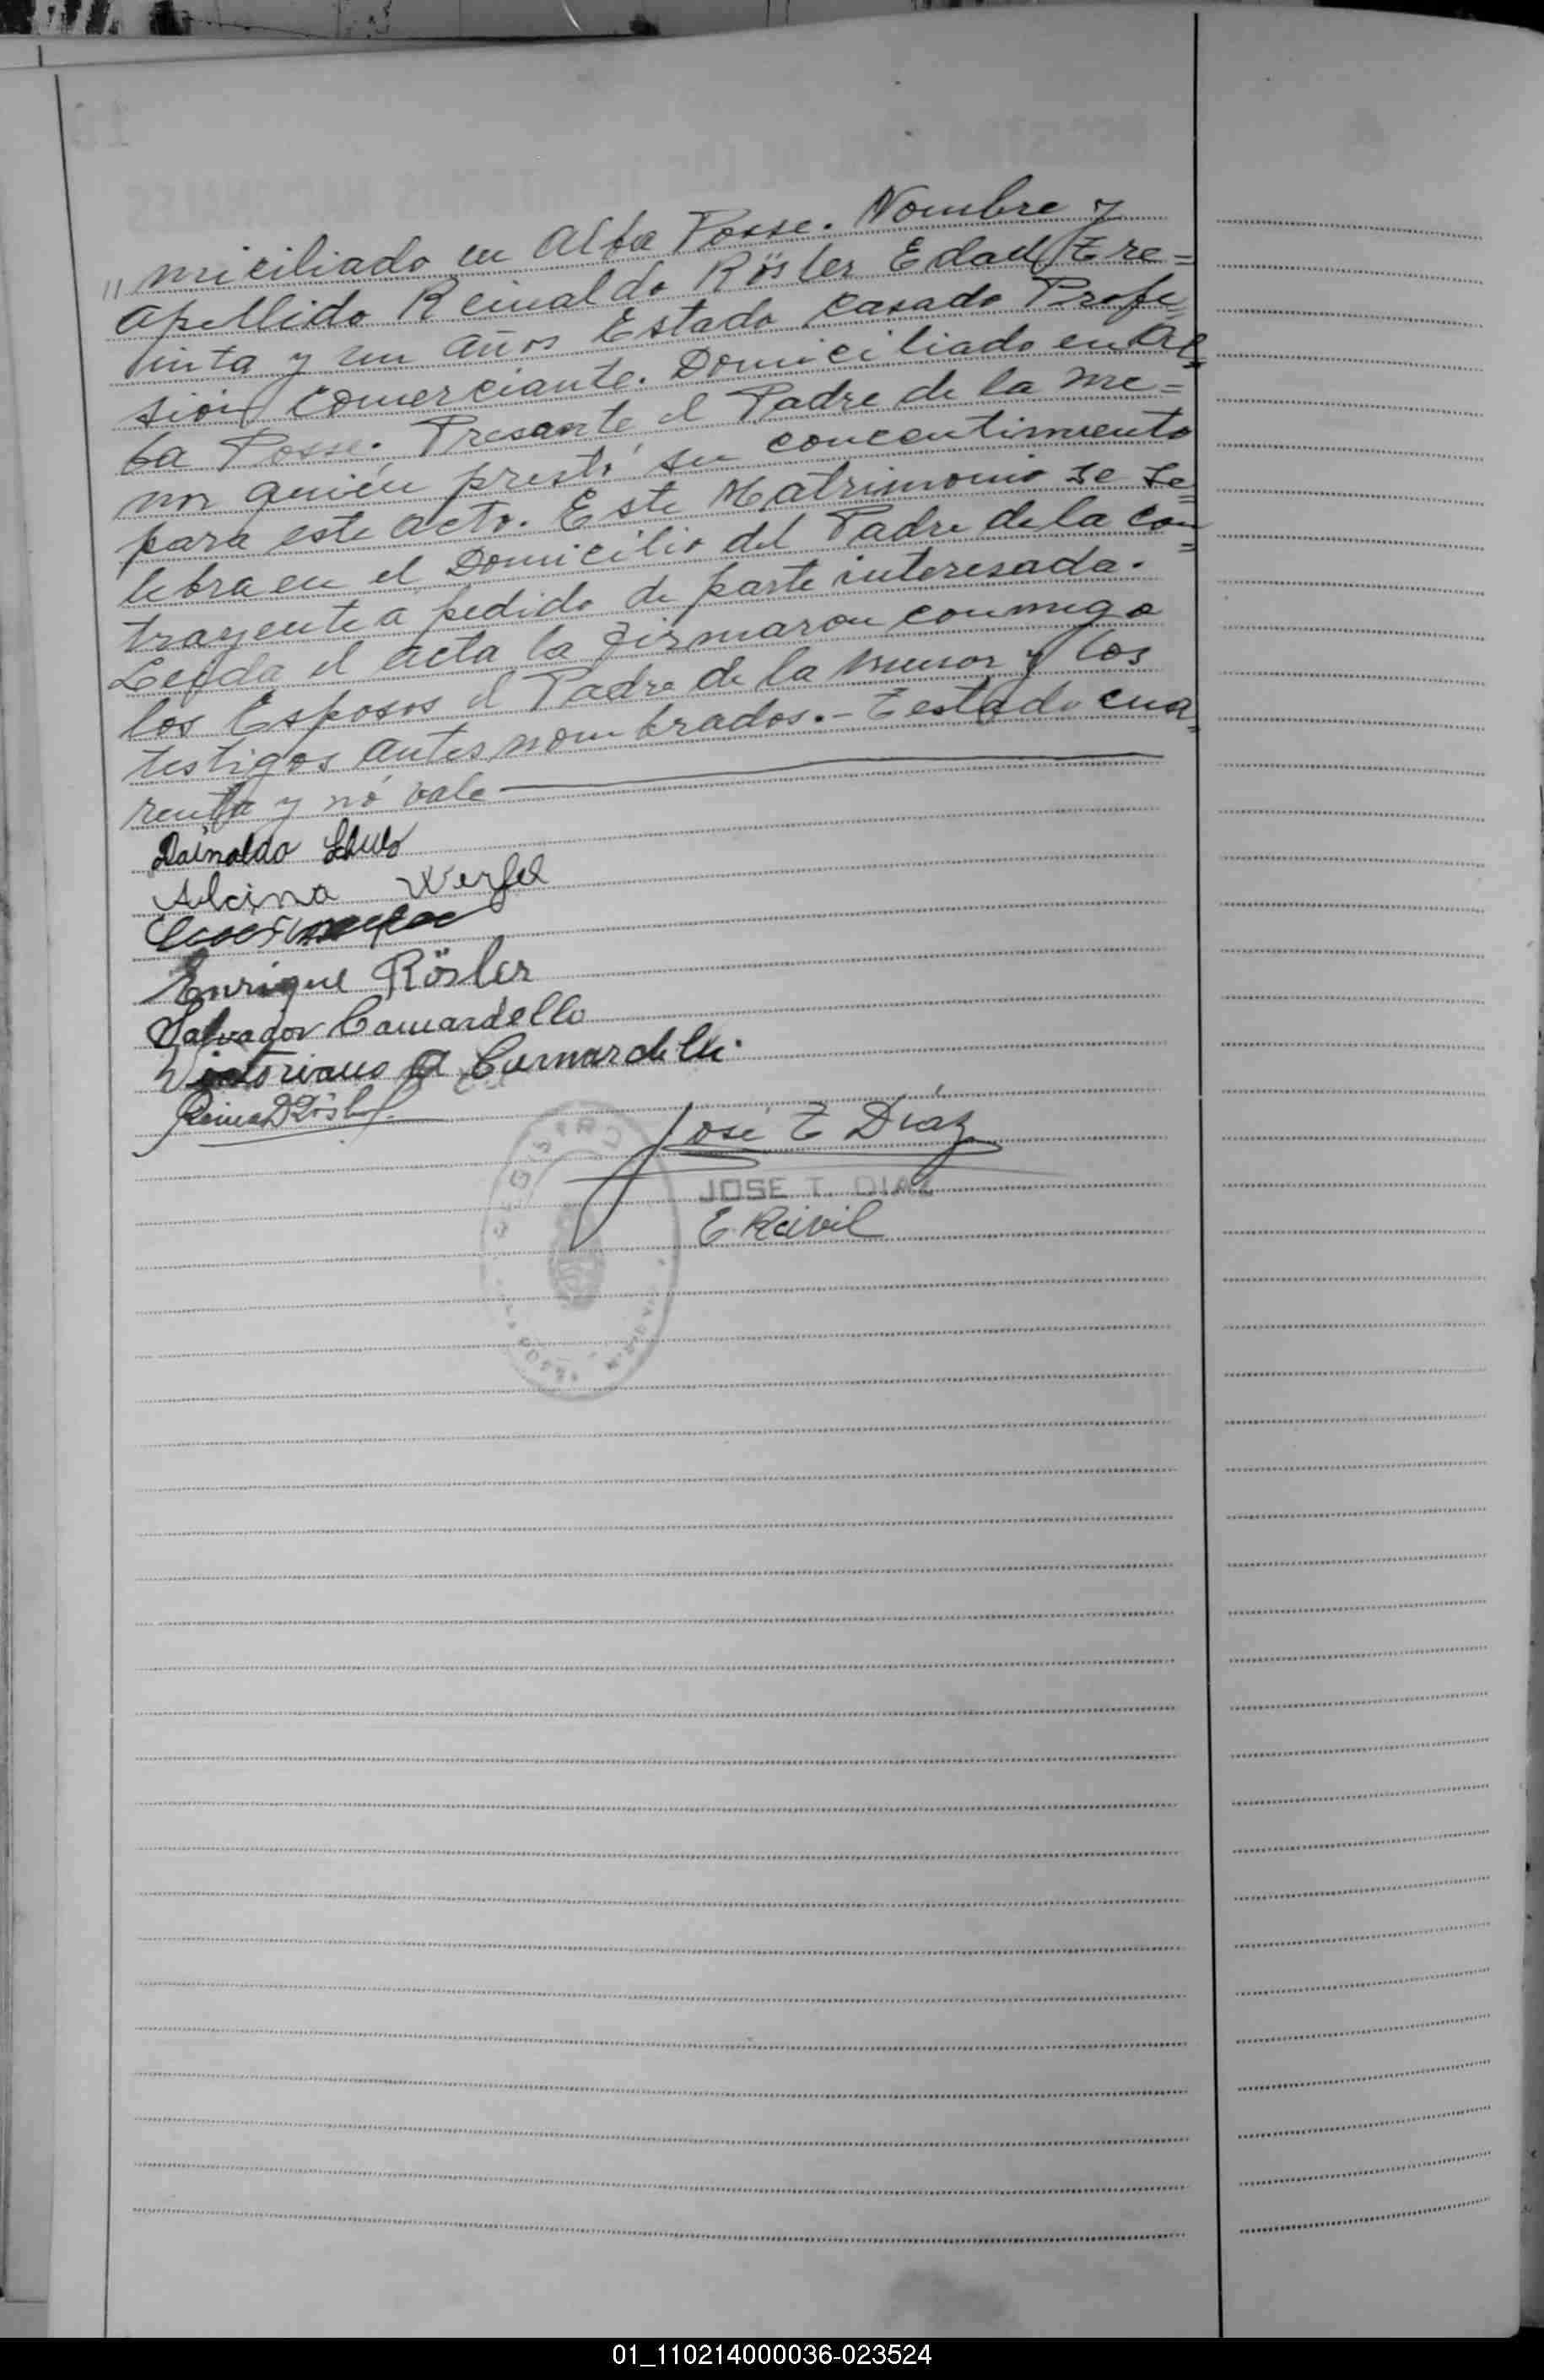 " miciliado en Alba Posse. Nombre y
apellido Reinaldo Rösler Edad Tre=
inta y un años Estado casado Profe=
sión comerciante. Domiciliado en Al=
ba Posse. Presante el Padre de la me=
nor quién prestó su concentimiento
para este acto. Este Matrimonio se se=
lebra en el Domicilio del Padre de la con=
trayente a pedido de parte interesada.
Leida el acta la firmaron conmigo
los Esposos el Padre de la menor y los
testigos antes nombrados.- Testado cua=
renta y nó vale
Rainoldo
Alcina Werfel
Enrique Rösler
Salvador Camardello
Victoriano A
José T Diaz
JOSE T. DIAZ
E. R civil
01_110214000036-023524